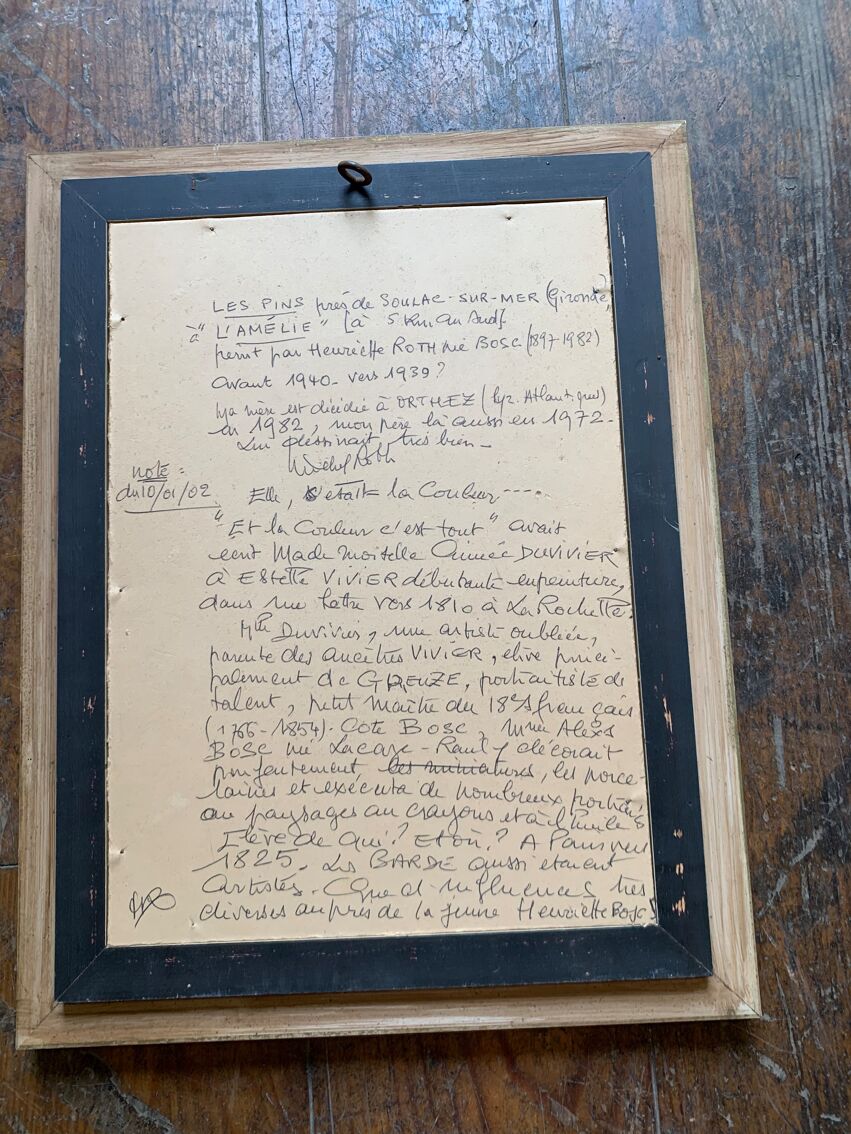 LES PINS près de SOULAC-SUR-MER (Gironde)
à "L'AMÉLIE" [à 5 Km. au Sud]
peint par Henriette ROTH née BOSC (1897-1982)
avant 1940 - vers 1939?
Ma mère est décédée à ORTHEZ (Pyr. Atlantiques)
en 1982, mon père là aussi en 1972.
Lui dessinait très bien -
Michel Roth
note =
du 10/01/02
Elle, c'était la Couleur ----
"Et la Couleur c'est tout" avait
écrit Mademoiselle Aimée DUVIVIER
à Estelle VIVIER débutante en peinture,
dans une lettre vers 1810 à La Rochelle.
Mlle Duvivier, une artiste oubliée,
parente des ancêtres VIVIER, élève princi-
palement de GREUZE, portraitiste de
talent, petit maître du 18e S français
(1766-1854). Côté BOSC, Mme Alexis
BOSC née Lacaze - décorait
les miniatures, les porce-
laines et exécuta de nombreux portraits
ou paysages au crayons et à l'huile
Elève de qui? Et où? A Paris vers
1825. Les BARDE aussi étaient
artistes. Que d'influences très
diverses auprès de la jeune Henriette Bosc!